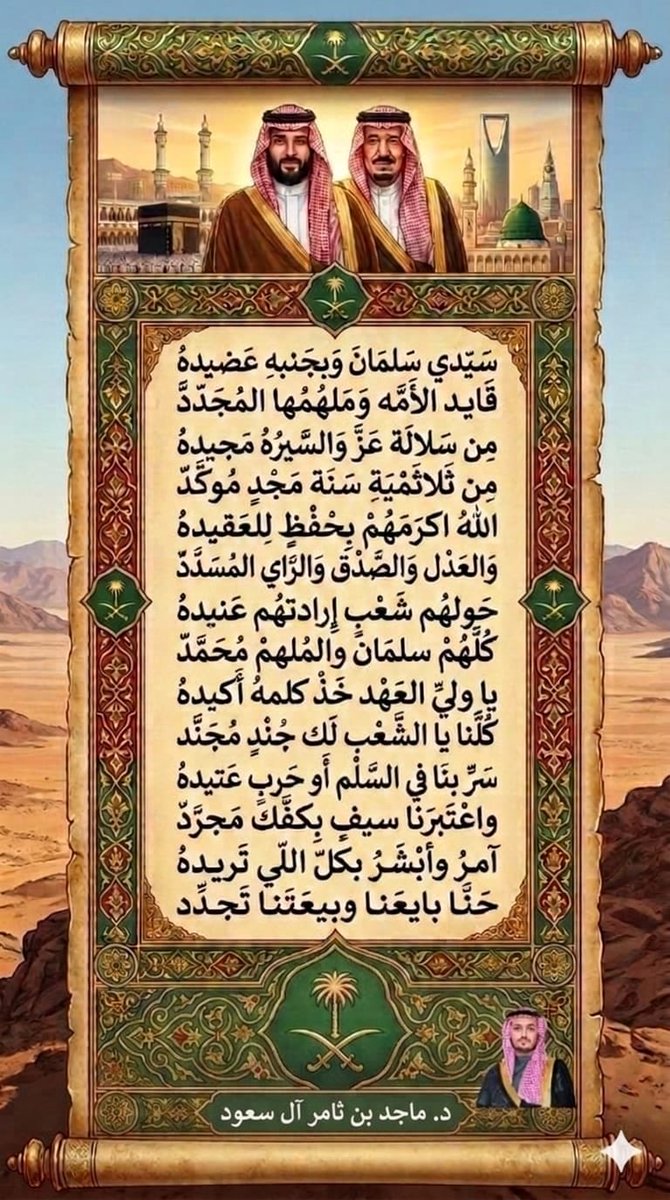 سَيّدي سَلمَانَ وَبجَنبهِ عَضيدهُ
قَايد الأمَّه وَمَلهُمُها المُجَدّدَّ
مِن سَلالَة عَزَّ وَالسَّيرُهُ مَجيدهُ
مِن ثَلاثَمْيَةِ سَنَة مَجْدٍ مُوكَّدّ
اللهُ اكرَمَهُمْ بِحْفْظٍ لِلعَقيدهُ
وَالعَدْل وَالصَّدْق وَالرَّاي المُسَدَّدّ
حَولهُم شَعْبٍ إِرادتهُم عَنيدهُ
كُلَّهُمْ سلمَانَ والمُلهمْ مُحَمَّدّ
يا وليِّ العَهْد خَذْ كلمهُ أَكيدهُ
كُلَّنا يا الشَّعْب لَك جُنْدٍ مُجَنَّد
سَرِّ بنَا في السَّلْم أَو حَربٍ عَتيدهُ
واعْتَبرَنا سيفٍ بِكفَّكَ مَجرَّدّ
آمرُ وأبْشَرُ بكلّ اللّي تَريدهُ
حَنَّا بايعَنا وبيعَتَنا تَجدِّد
د. ماجد بن ثامر آل سعود